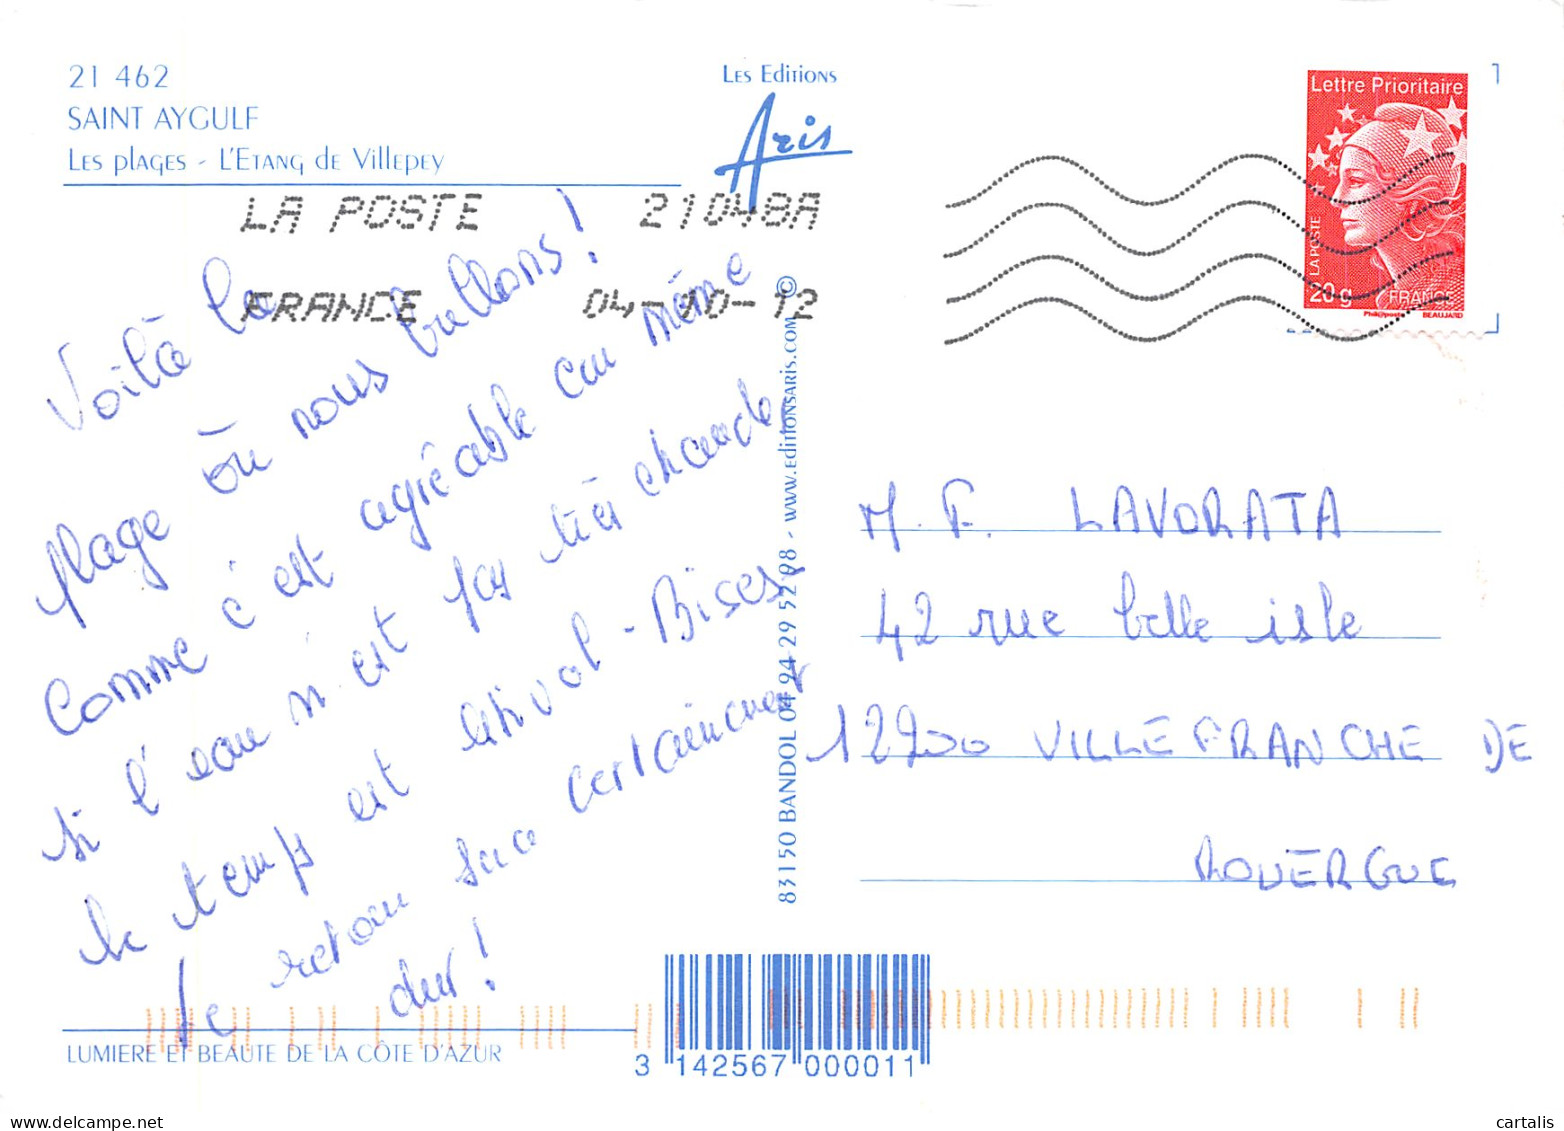 21 462
SAINT AYGULF
Les plages - L'Etang de Villepey
Les Editions
Aris
LA POSTE 21048A
FRANCE 04-10-12
Lettre Prioritaire
LA POSTE
20 g
FRANCE
Phil@poste
BEAUJARD
Voilà la
plage où nous brillons !
Comme c'est agréable car même
si l'eau n'est pas très chaude,
le temps est estival - Bises.
Le retour sera certainement
dur !
83150 BANDOL 04 94 29 52 98 - www.editionsaris.com ©
M. F. LAVORATA
42 rue belle isle
12200 VILLEFRANCHE DE
ROUERGUE
LUMIERE ET BEAUTE DE LA CÔTE D'AZUR
3 142567 000011
cartalis